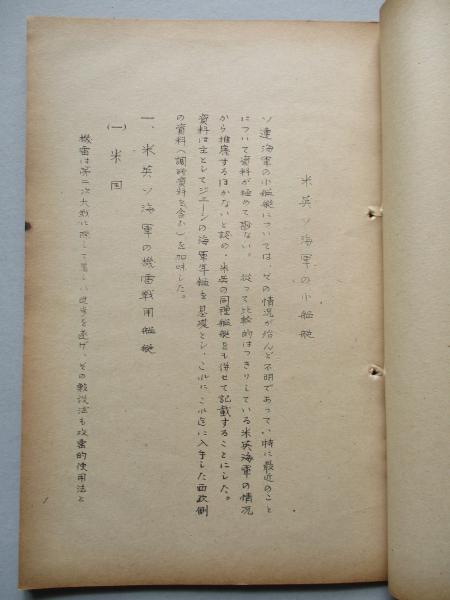 米英ソ海軍の小艦艇
ソ連海軍の小艦艇については、その情況が殆んど不明であつて、特に最近のこと
について資料が極めて尠ない。従つて比較的はつきりしている米英海軍の情況
から推察するほかないと認め、米英の同種艦艇をも併せて記載することにした。
資料は主としてジエーンの海軍年鑑を基礎とし、これに、これ迄に入手した西欧側
の資料(調時資料を含む)を加味した。
一、米英ソ海軍の機雷戦用艦艇
(一)米国
機雷は第二次大戦に際して著しい進歩を遂げ、その敷設法も攻雷的使用法と